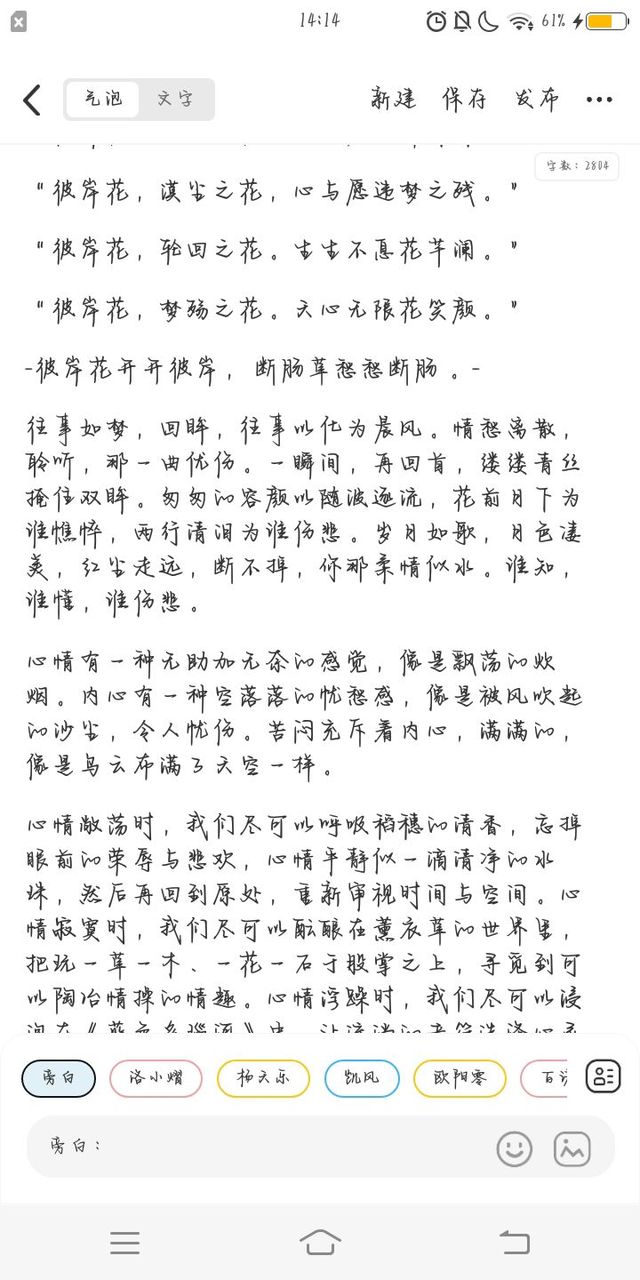 14:14
61%
气泡
文字
新建
保存
发布
字数：2804
“彼岸花，漠尘之花，心与愿违梦之残。”
“彼岸花，轮回之花。生生不息花芊澜。”
“彼岸花，梦殇之花。天心无限花笑颜。”
-彼岸花开开彼岸，断肠草愁愁断肠。-
往事如梦，回眸，往事以化为晨风。情愁离散，
聆听，那一曲优伤。一瞬间，再回首，缕缕青丝
掩住双眸。匆匆的容颜以随波逐流，花前月下为
谁憔悴，两行清泪为谁伤悲。岁月如歌，月色凄
美，红尘走远，断不掉，你那柔情似水。谁知，
谁懂，谁伤悲。
心情有一种无助加无奈的感觉，像是飘荡的炊
烟。内心有一种空落落的忧愁感，像是被风吹起
的沙尘，令人忧伤。苦闷充斥着内心，满满的，
像是乌云布满了天空一样。
心情敞荡时，我们尽可以呼吸稻穗的清香，忘掉
眼前的荣辱与悲欢，心情平静似一滴清净的水
珠，然后再回到原处，重新审视时间与空间。心
情寂寞时，我们尽可以酝酿在薰衣草的世界里，
把玩一草一木、一花一石于股掌之上，寻觅到可
以陶冶情操的情趣。心情浮躁时，我们尽可以浸
旁白
洛小熠
杨天乐
凯风
欧阳零
百诺
旁白：